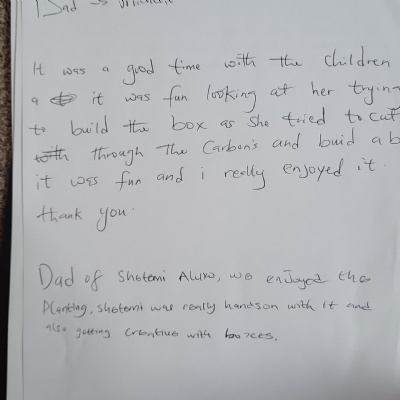 Dad
It was a good time with the children
a it was fun looking at her tryin
to build the box as she tried to cut
through the Carbon's and buid a b
it was fun and i really enjoyed it.
thank you.
Dad of Shotemi Aluko, we enjoyed the
Planting, Shotemi was really handson with it and
also getting creative with boxes.